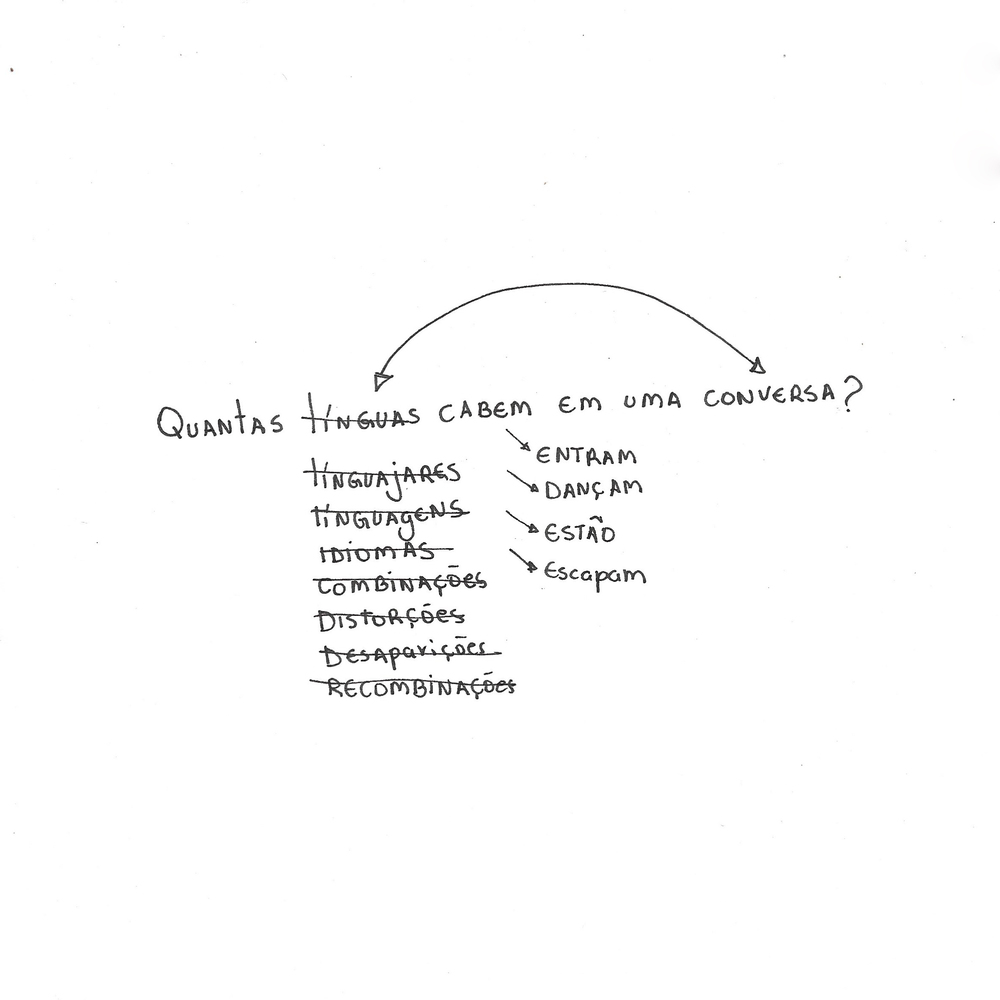 Quantas línguas cabem em uma conversa?
Entram
linguajares
Dançam
linguagens
Estão
idiomas
Escapam
combinações
distorções
Desaparições
Recombinações